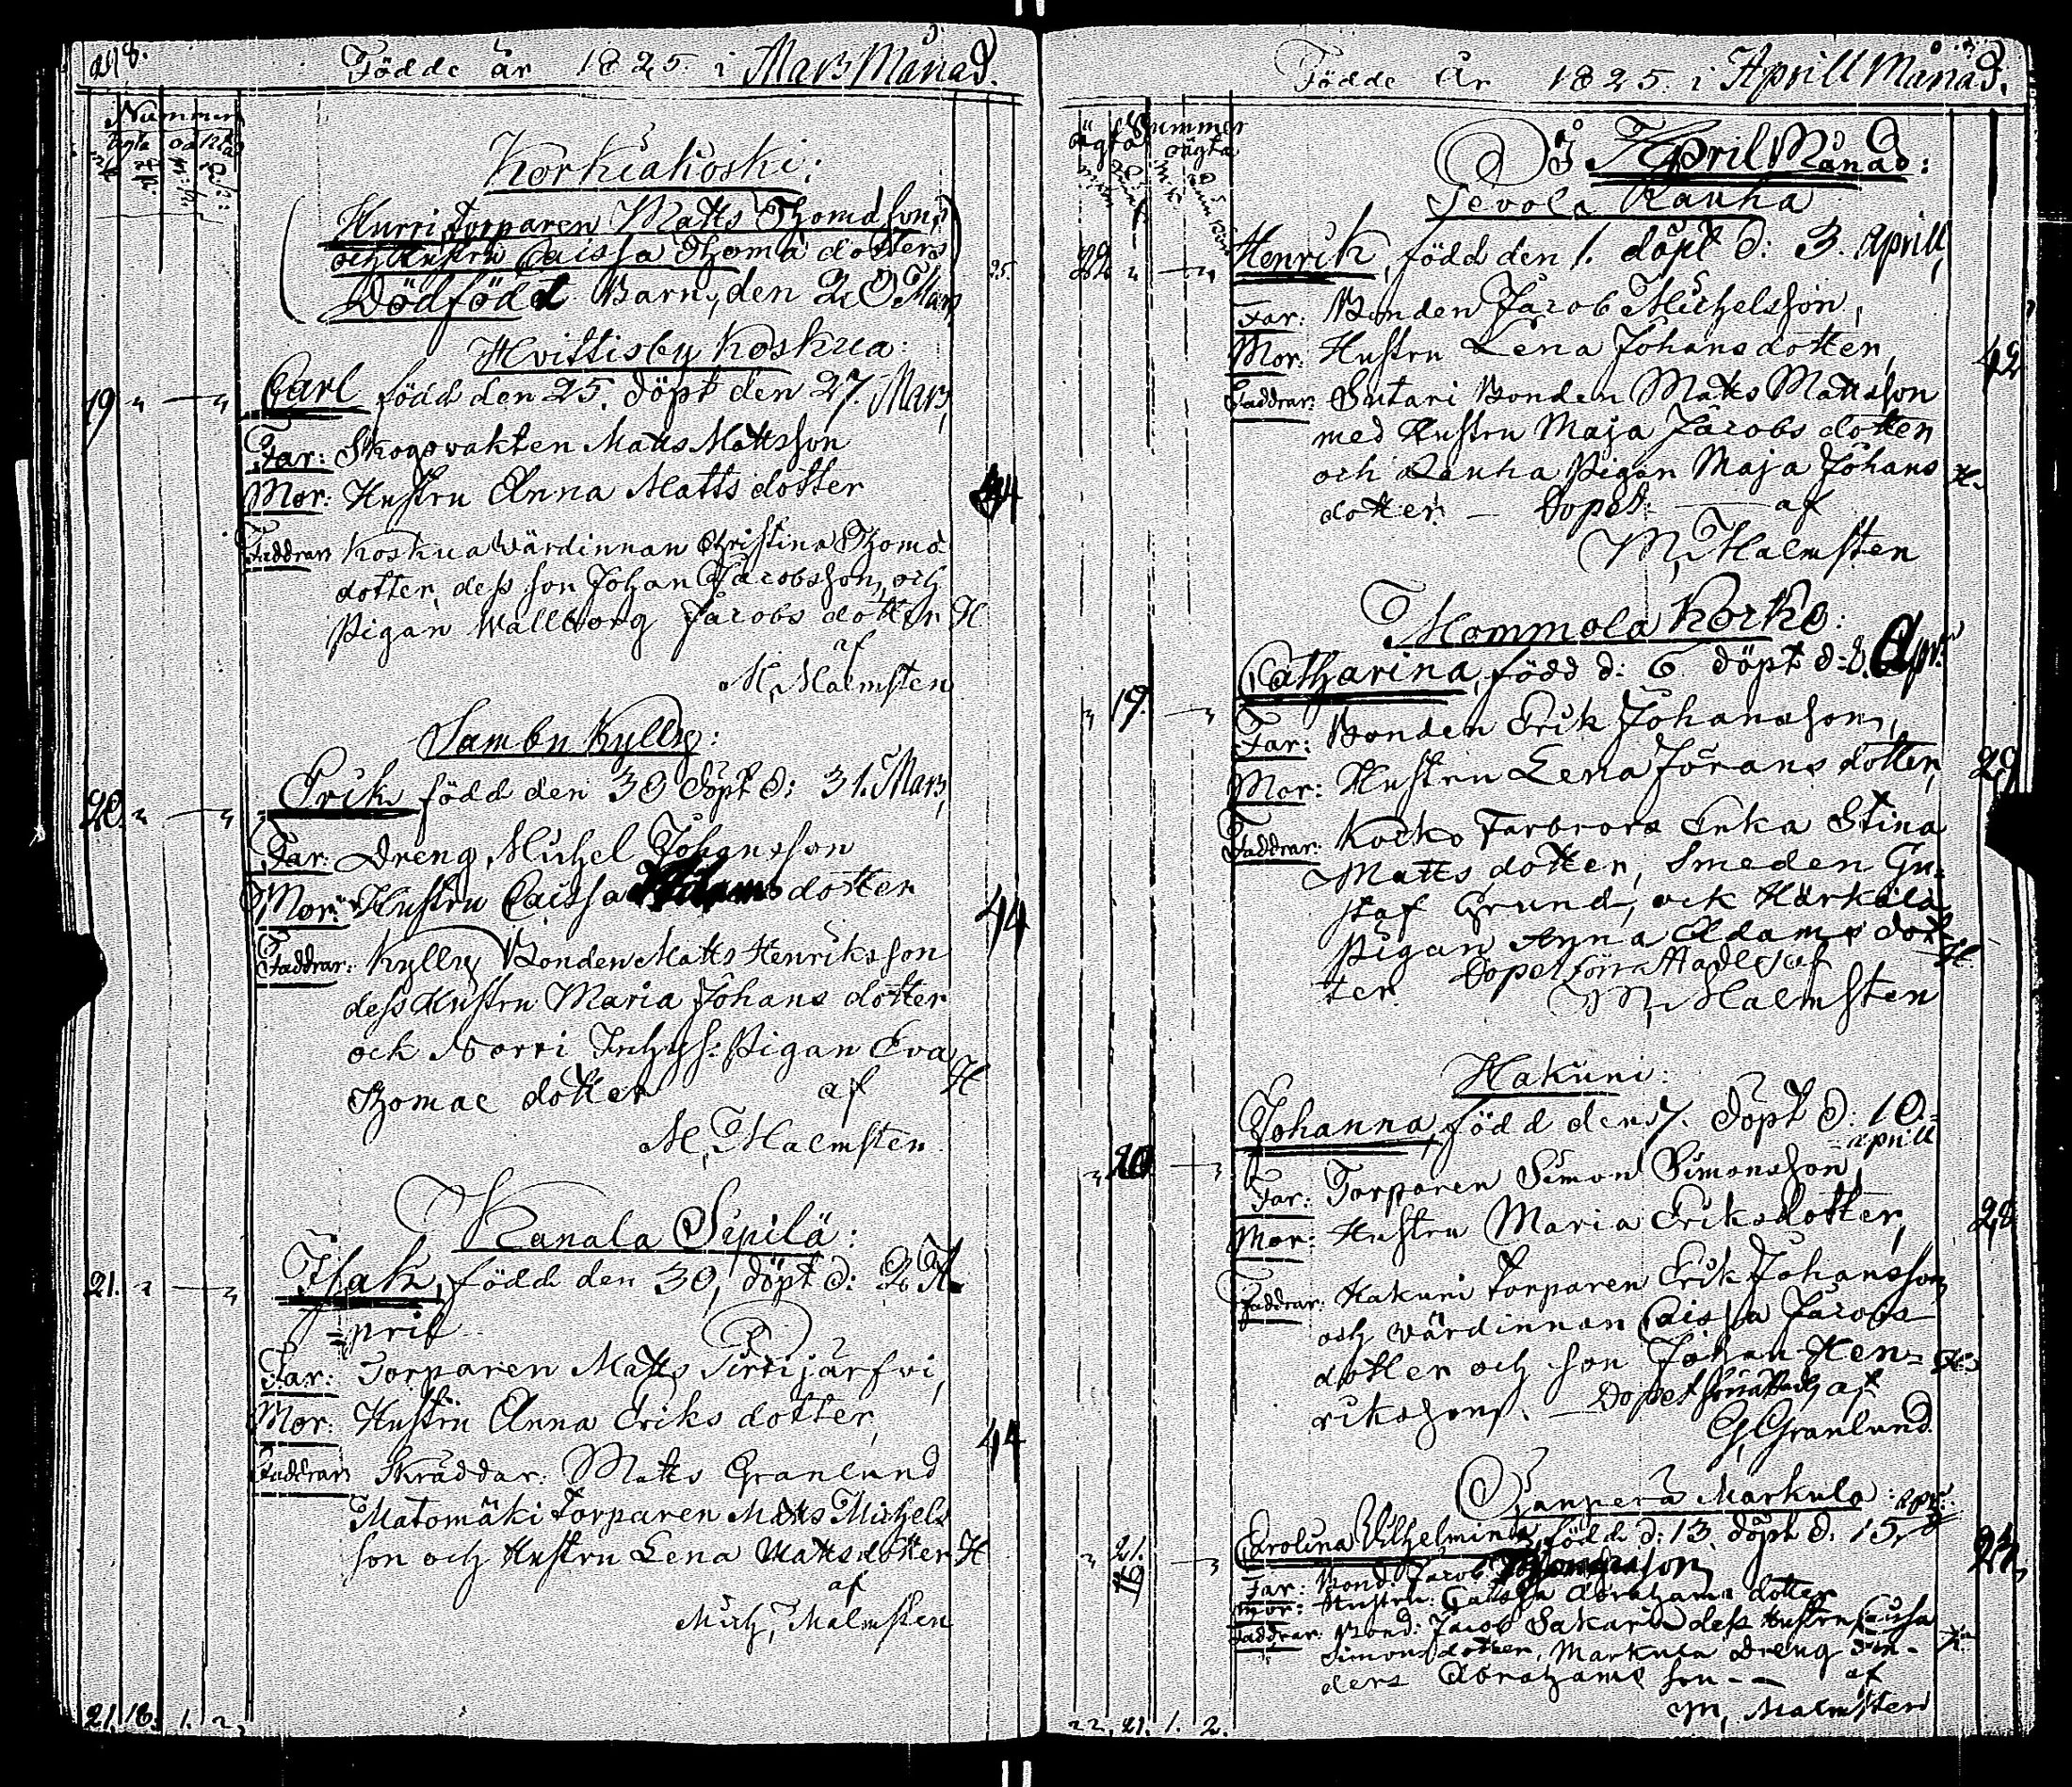 218.
Födde år 1825. i Mars Månad.
Nummer
ägta oächta
Korkiakoski:
Hurri torparen Matts Thomasson,
och Hustru Caissa Thomæ dotters
Dödfödt Barn, den 20 Mars
25.
Hvittisby Koskua:
19 Carl född den 25. döpt den 27. Mars,
Far: Skogvakten Matts Mattsson
Mor: Hustru Anna Matts dotter
44
Faddrar: Koskua Wärdinnan Christina Thomæ
dotter, dess son Johan Jacobsson, och
Pigan Wallborg Jacobs dotter H
af
M. Malmsten
Samby Kylly:
20. Erik född den 30 döpt d: 31. Mars,
Far: Dreng Michel Johansson
Mor: Hustru Caissa Adams dotter
44
Faddrar: Kylly Bonden Matts Henriksson
dess Hustru Maria Johans dotter
ock Norri Inhys: Pigan Eva
Thomae dotter af H
M. Malmsten
Kanala Sipilä:
21. Isak, född den 30, döpt d: 2 A-
=pril
Far: Torparen Matts Pirttijärfvi,
Mor: Hustru Anna Eriks dotter,
44
Faddrar: Skräddar: Matts Granlund
Matomäki Torparen Matts Michels
son och Hustru Lena Mattsdotter H
af
Mich, Malmsten
21. 18. 1. 2.
Födde År 1825. i Aprill Månad.
Nummer
ägta oägta
I April Månad:
Sevola Ranha
22 Henrik, född den 1. döpt d: 3. Aprill,
Far: Bonden Jacob Michelsson,
Mor: Hustru Lena Johansdotter,
42
Faddrar: Sutari Bonden Matts Mattsson
med Hustru Maja Jacobs dotter
och Ranha Pigan Maja Johans H.
dotter. — Döpet — af
M. Malmsten
Mommola Korko:
19. Catharina, född d: 6 döpt d: 8. Apr:
Far: Bonden Erik Johansson,
Mor: Hustru Lena Jörans dotter,
29
Faddrar: Korko Farbrors Erka Stina
Matts dotter, Smeden Gu-
staf Grund, ock Härkälä
Pigan Anna Adams dot
ter. Döpet förrättadt af H.
M. Malmsten
Hakuni:
20 Johanna, född den 7. döpt d: 10.
aprill
Far: Torparen Simon Simonsson,
Mor: Hustru Maria Eriksdotter,
28
Faddrar: Hakuni torparen Erik Johansson
och Wärdinnan Caissa Jacobs
dotter och son Johan Hen-
riksson. — Döpet förrättadt af
G, Granlund.
Markula: apr:
21. Carolina Wilhelmina, född d: 13. döpt d. 15,
Far: Bond: Jacob
Mor: Hustru: Caissa Abrahams dotter
Faddrar: Bond: Jacob Sakari dess Hustru Caisa
Simonsdotter, Markula Dreng An-
ders Abrahams son — af
M, Malmsten
22. 21. 1. 2.